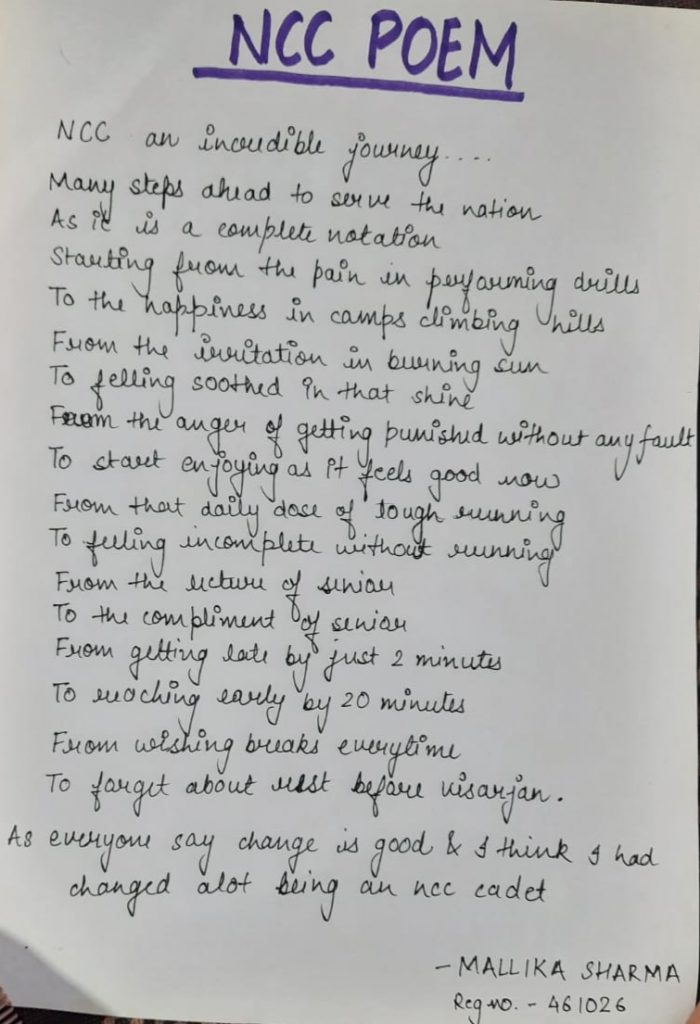 NCC POEM
NCC an incredible journey....
Many steps ahead to serve the nation
As it is a complete notation
Starting from the pain in performing drills
To the happiness in camps climbing hills
From the irritation in burning sun
To felling soothed in that shine
From the anger of getting punished without any fault
To start enjoying as it feels good now
From that daily dose of tough running
To felling incomplete without running
From the lecture of senior
To the compliment of senior
From getting late by just 2 minutes
To reaching early by 20 minutes
From wishing breaks everytime
To forget about rest before visarjan.
As everyone say change is good & I think I had
changed alot being an ncc cadet
- MALLIKA SHARMA
Reg no. - 461026